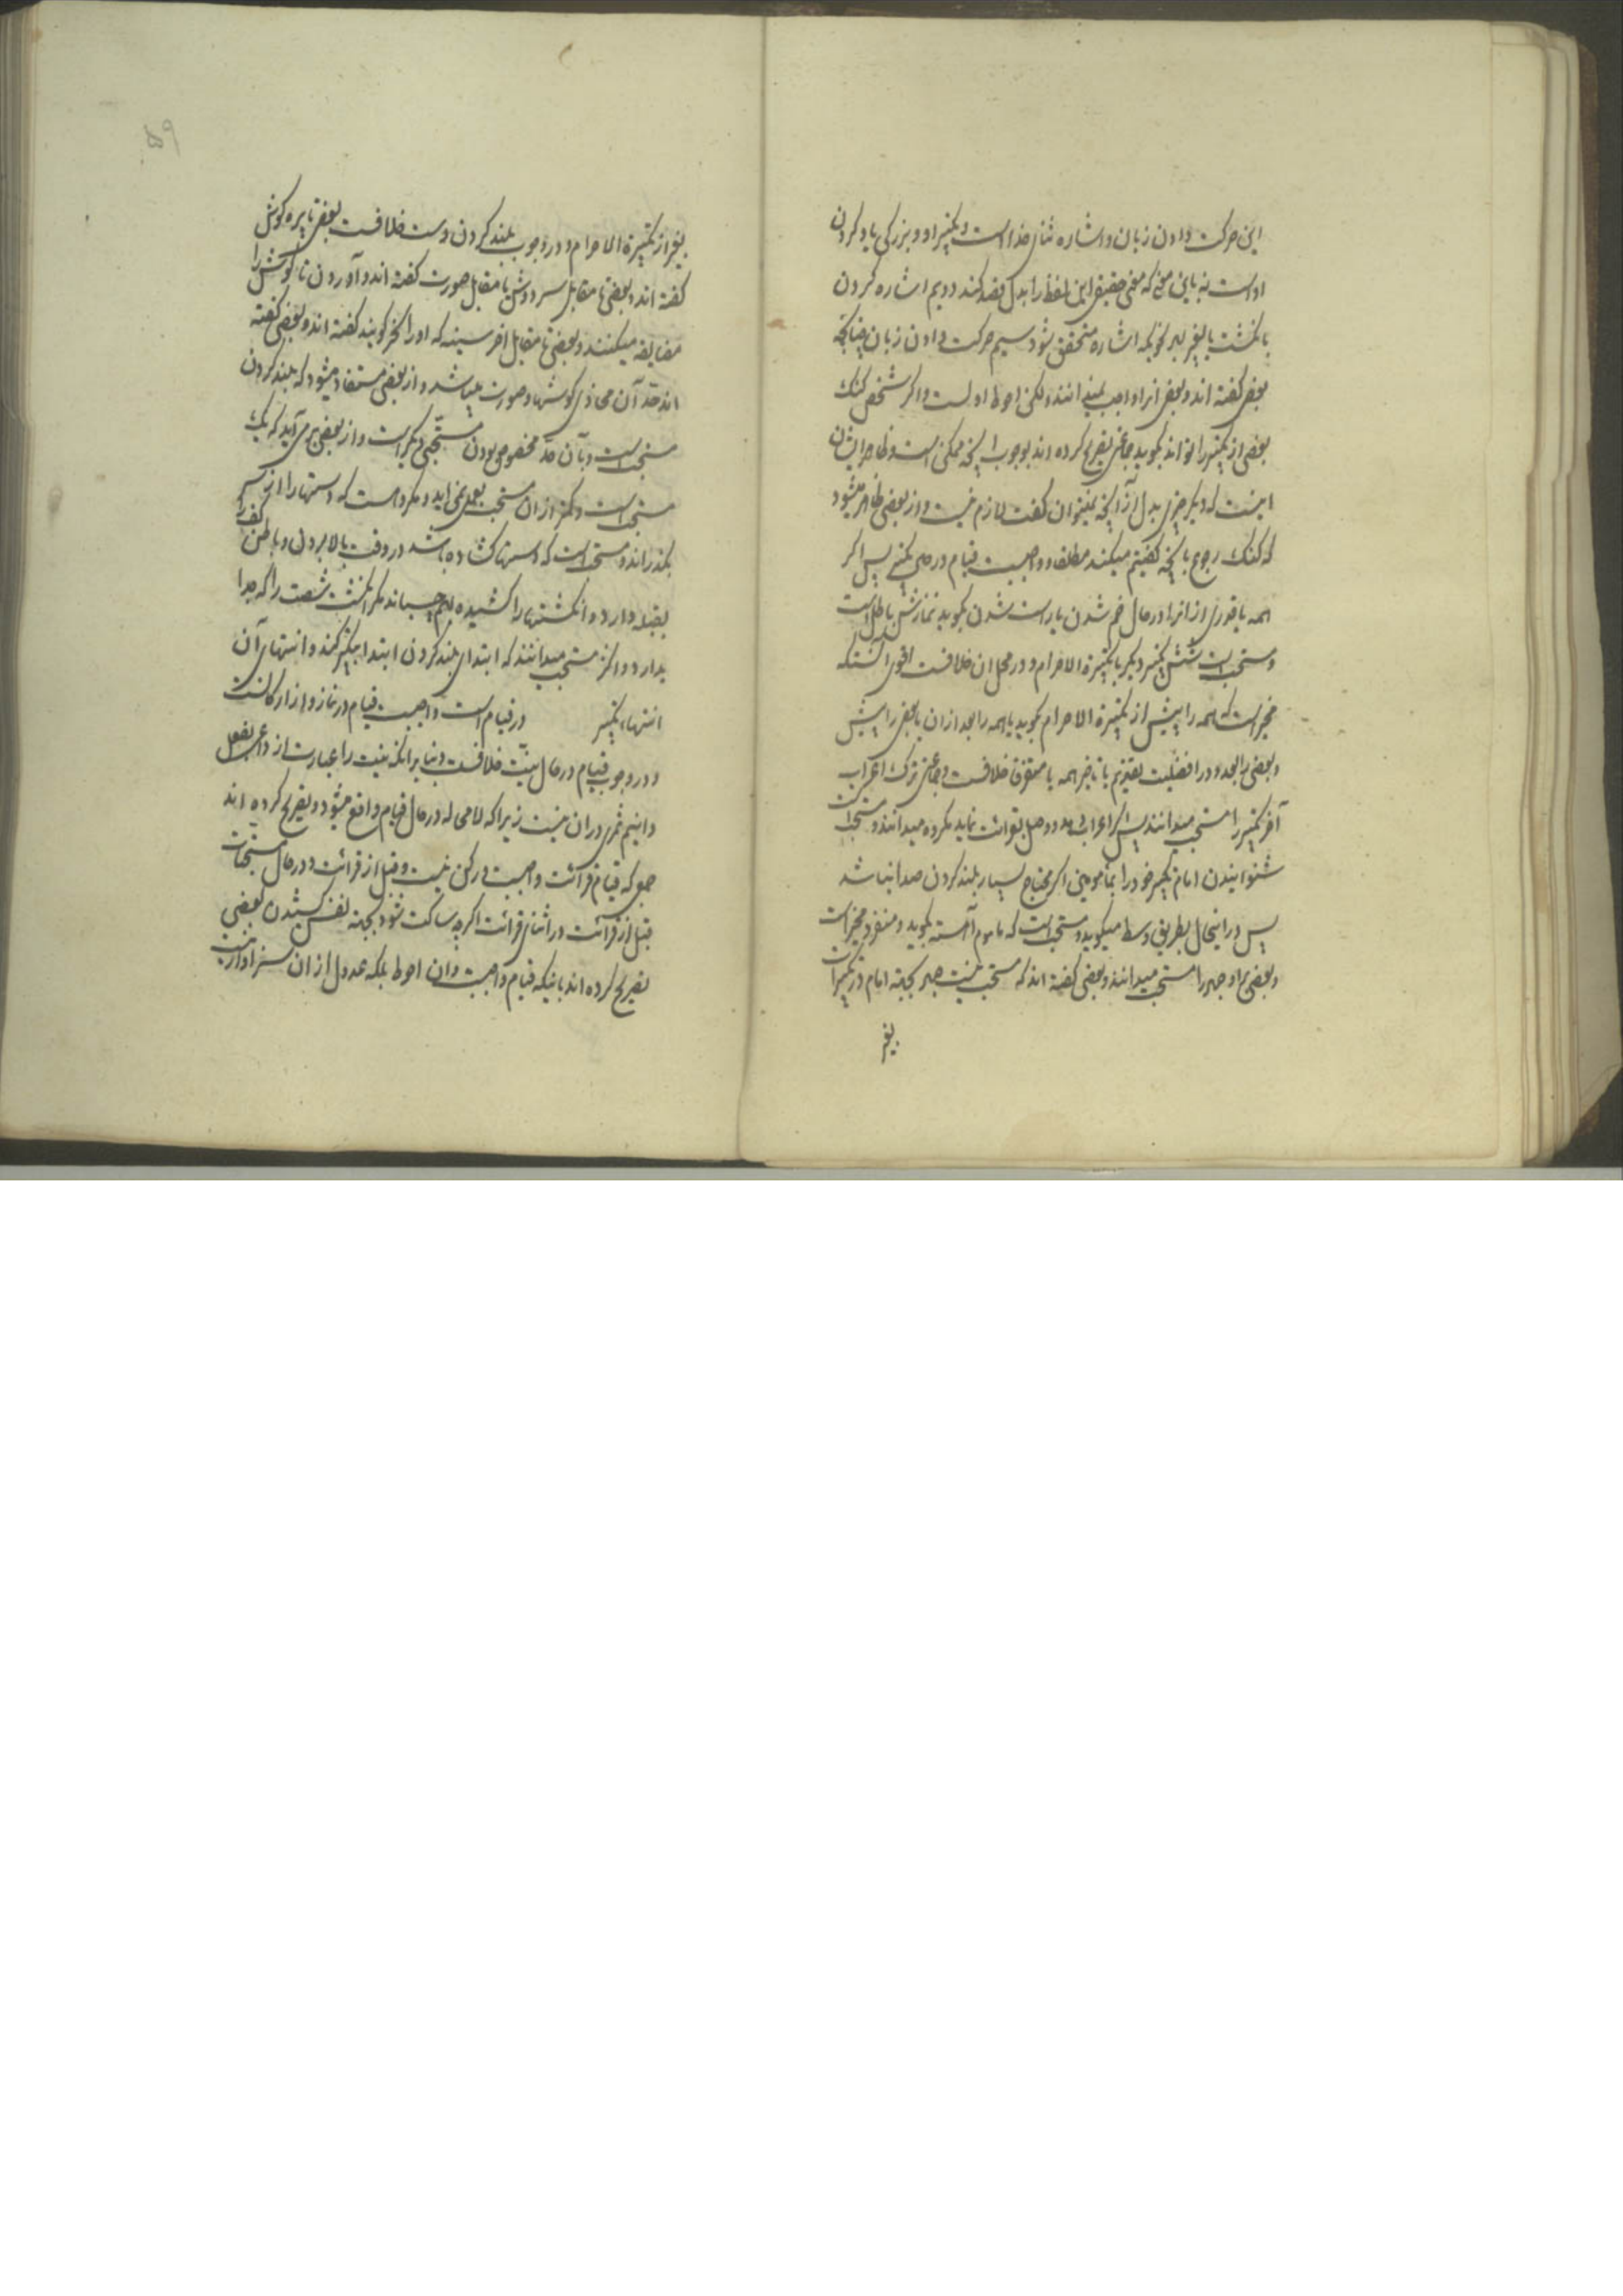 این حرکت دادن زبان و اشاره ثنای خداست و تکبیر او و بزرکی یاد کردن
اوست نه باین معنی که معنی حقیقی این لفظ را بدل قصد کند دویم اشاره کردن
بانکشت یا بغیر بهر نحویکه اشاره متحقق شود سیم حرکت دادن زبان چنانچه
بعضی کفته اند و بعضی انرا واجب نمیدانند و لکن احوط اولست و اکر شخص کنک
بعضی از تکبیر را تواند بکوید جماعتی تصریح کرده اند بوجوب انچه ممکن است و ظاهر ایشان
اینست که دیکر چیزی بدل از انچه نمیتوان کفت لازم نیست و از بعضی ظاهر میشود
که کنک رجوع بانچه کفتیم میکند مطلقا و واجبست قیام در حین تکبیر پس اکر
همه یا قدری از انرا در حال خم شدن یا راست شدن بکوید نمازش باطل است
و مستحب است شش تکبیر دیکر با تکبیرة الاحرام و در محل ان خلافست اقوی آنستکه
مخیر است که همه را پیش از تکبیرة الاحرام بکوید یا همه را بعد از ان یا بعضی را پیش
و بعضی را بعد و در افضلیت تقدیم یا تاخیر همه یا متفرق خلافست و جماعتی ترک اعراب
آخر تکبیر را مستحب میدانند پس اکر اعراب دهد و وصل بقرائت نماید مکروه میدانند و مستحب است
شنوانیدن امام تکبیر خود را بمأمومین اکر محتاج بسیار بلند کردن صدا نباشد
پس در اینحال بطریق وسط میکوید و مستحب است که ماموم آهسته بکوید و منفرد مخیر است
و بعضی برای او جهر را مستحب میدانند و بعضی کفته اند که مستحب نیست جهر بجهة امام در تکبیرات
بغیر
بغیر از تکبیرة الاحرام و در وجوب بلند کردن دست خلافست بعضی تا پره کوش
کفته اند و بعضی تا مقابل سر دوش یا مقابل صورت کفته اند و آوردن تا کوش را
مضایقه میکنند و بعضی تا مقابل اخر سینه که او را نحر کویند کفته اند و بعضی کفته
اند حد آن محاذی کوشها و صورت میباشد و از بعضی مستفاد میشود که بلند کردن
مستحب است و بآن حد مخصوص بودن مستحبی دیکر است و از بعضی بر می آید که یک
مستحب است و کمتر از ان مستحب بعمل نمی اید و مکروهست که دستها را از سر
بکذراند و مستحب است که دستها کشاده باشد در وقت بالا بردن و باطن کف را
بقبله دارد و انکشتها را کشیده بهم چسباند مکر انکشت شصت را که جدا
بدارد و اکثر مستحب میدانند که ابتدای بلند کردن ابتدا بتکبیر کند و انتهای آن
انتهاء تکبیر در قیام است واجبست قیام در نماز و از ارکانست
و در وجوب قیام در حال نیت خلافست و بنا بر انکه نیت را عبارت از داعی بفعل
دانیم ثمری در ان نیست زیرا که لا محاله در حال قیام واقع میشود و تصریح کرده اند
جمعی که قیام قرائت واجبست و رکن نیست و قبل از قرائت و در حال مستحبات
قبل از قرائت و در اثنای قرائت اکر چه ساکت شود بجهة نفس کشیدن بعضی
تصریح کرده اند باینکه قیام واجبست و ان احوط بلکه عدول از ان سزاوار نیست